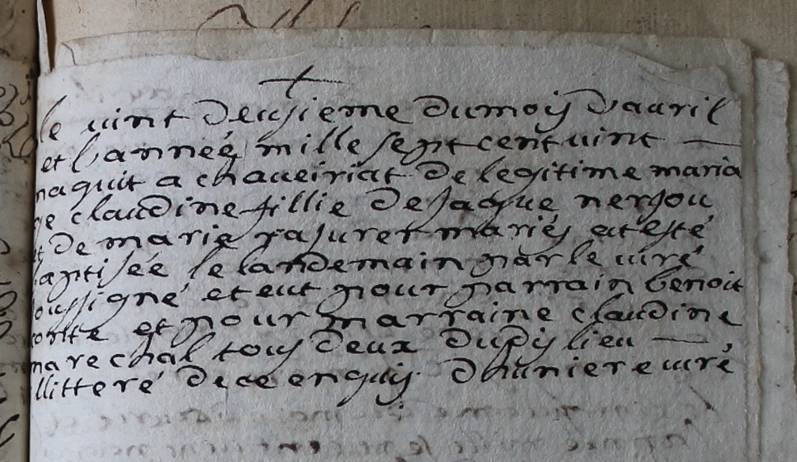 le vint deusieme dumois d'auril
et l'année mille sept cent vint
naquit a chaveiriat de legitime maria
ge claudine fillie de Jaque nerjou
et de marie rasuret mariés et esté
baptisée le landemain par le curé
soussigné et eut pour parrain benoit
comte et pour marraine claudine
marechal tous deux dudis lieu
illitteré de ce enquis. Dhuniere curé